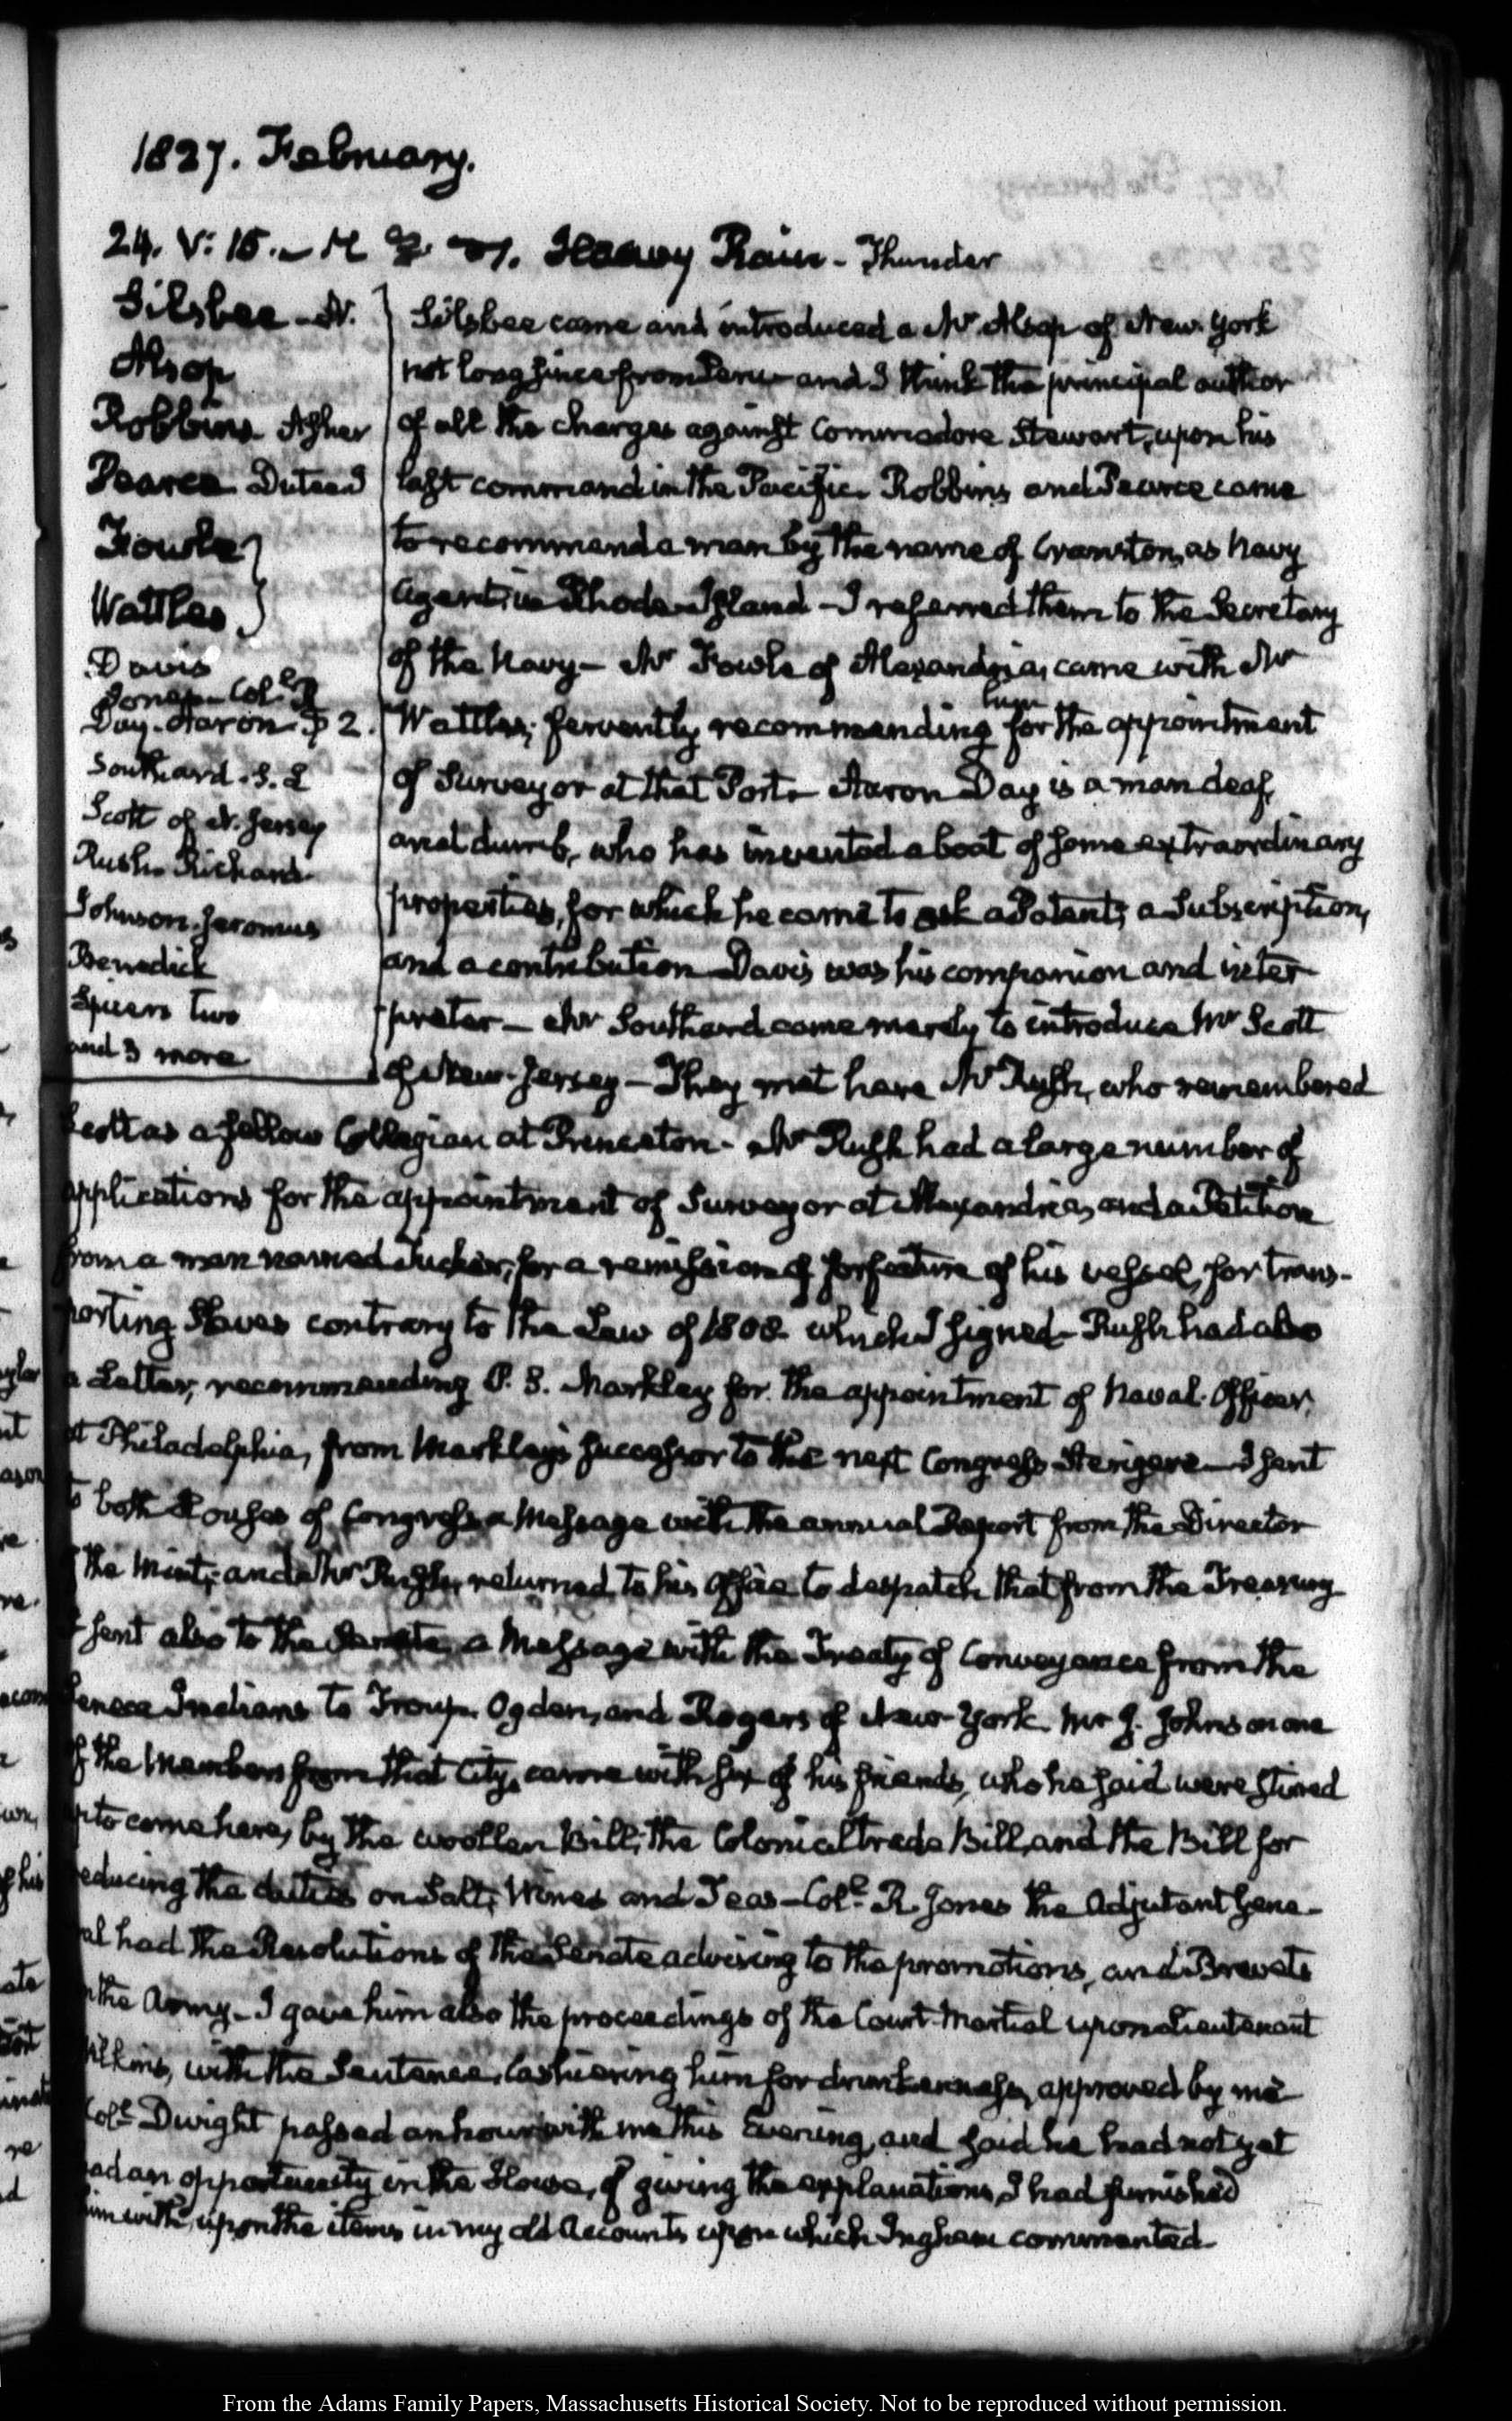 1827. February.
24. V: 15. Heavy Rain - Thunder
Silsbee - N.
Alsop
Robbins Asher
Pearce Dutee J
Fowle
Wattles
Davis
Jones - Col.l R
Day - Aaron 2.
Southard. S. L
Scott of N. Jersey
Rush. Richard
Johnson. Jeromus
Benedick
Spicers two
and 3 more
Silsbee came and introduced a Mr Alsop of New-York
not long since from Peru and I think the principal author
of all the charges against Commodore Stewart, upon his
last command in the Pacific. Robbins and Pearce came
to recommend a man by the name of Cranston, as Navy
Agent in Rhode-Island - I referred them to the Secretary
of the Navy - Mr Fowle of Alexandria, came with Mr
Wattles; fervently recommending him for the appointment
of Surveyor at that Port - Aaron Day is a man deaf,
and dumb, who has invented a boat of some extraordinary
properties, for which he came to ask a Patent; a Subscription,
and a contribution Davis was his companion and inter-
preter - Mr Southard came merely to introduce Mr Scott
of New-Jersey - They met here Mr Rush, who remembered
Scott as a fellow Collegian at Princeton - Mr Rush had a large number of
applications for the appointment of Surveyor at Alexandria, and a Petition
from a man named Tucker, for a remission of forfeiture of his vessel, for trans-
porting Slaves contrary to the Law of 1808 which I signed - Rush had also
a Letter, recommending P. S. Markley for the appointment of Naval-Officer,
at Philadelphia, from Markley's successor to the next Congress Sterigere - I sent
to both Houses of Congress a Message with the annual Report from the Director
of the Mint; and Mr Rush, returned to his Office to despatch that from the Treasury
I sent also to the Senate, a Message with the Treaty of Conveyance from the
Seneca Indians to Troup, Ogden, and Rogers of New-York. Mr J. Johnson one
of the Members from that City, came with six of his friends, who he said were stirred
up to come here, by the woollen Bill; the Colonial trade Bill, and the Bill for
reducing the duties on Salt, Wines and Teas - Col.l R. Jones the Adjutant Gene-
ral had the Resolutions of the Senate advising to the promotions, and Brevets
in the Army - I gave him also the proceedings of the Court-Martial upon Lieutenant
Wilkins, with the Sentence, cashiering him for drunkenness, approved by me
Col.l Dwight passed an hour with me this Evening, and said he had not yet
had an opportunity in the House, of giving the explanations, I had furnished
him with, upon the items in my old Accounts upon which Ingham commented.
From the Adams Family Papers, Massachusetts Historical Society. Not to be reproduced without permission.